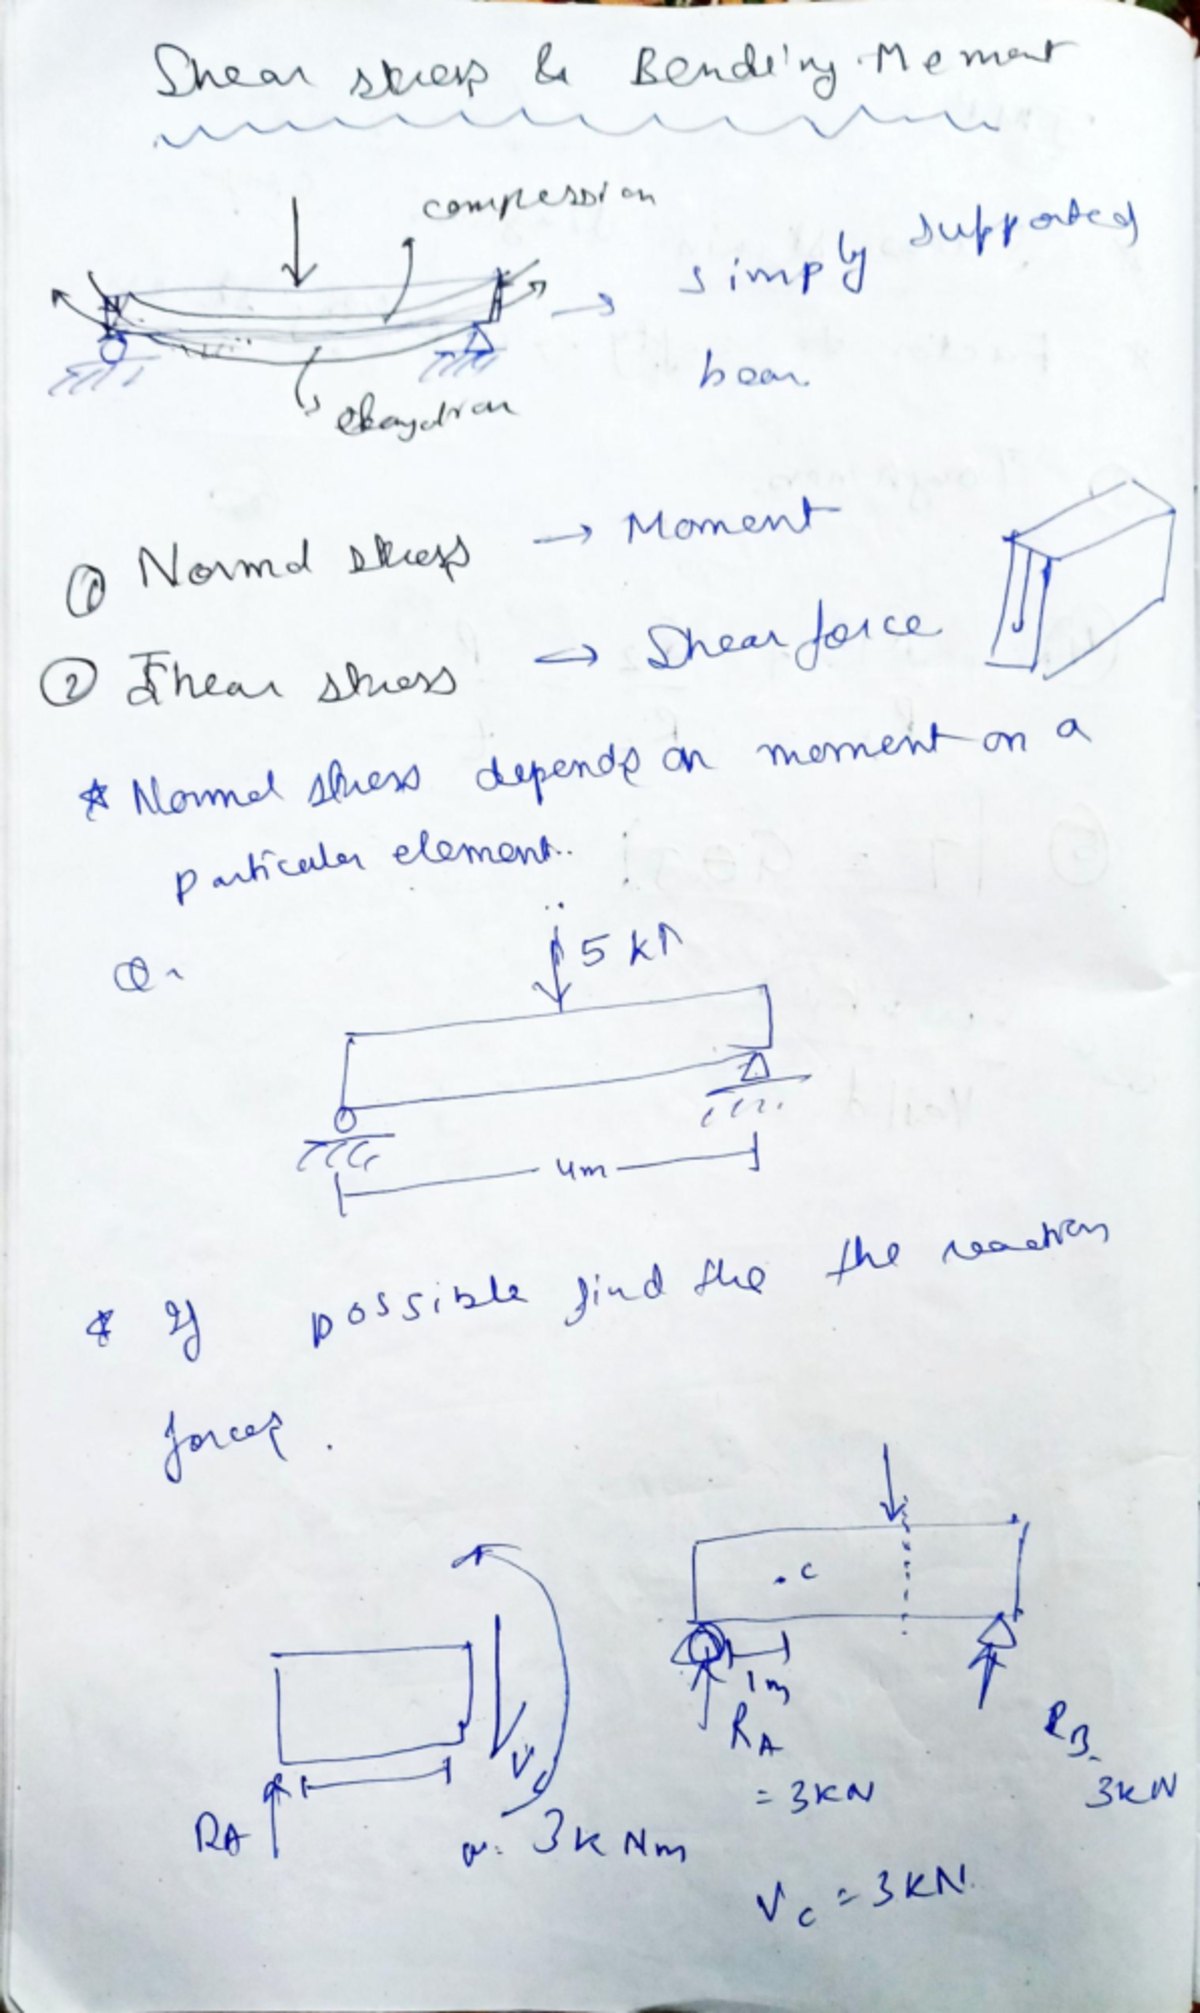 Shear stress & Bending Moment
compression
simply supported
beam
elongation
① Normal stress → Moment
② Shear stress → Shear force
* Normal stress depends on moment on a
particular element..
Q.
5 kN
4m
* If possible find the the reaction
forces.
.c
1m
RA
= 3KN
RB
3KN
RA
V
3K Nm
Vc = 3KN